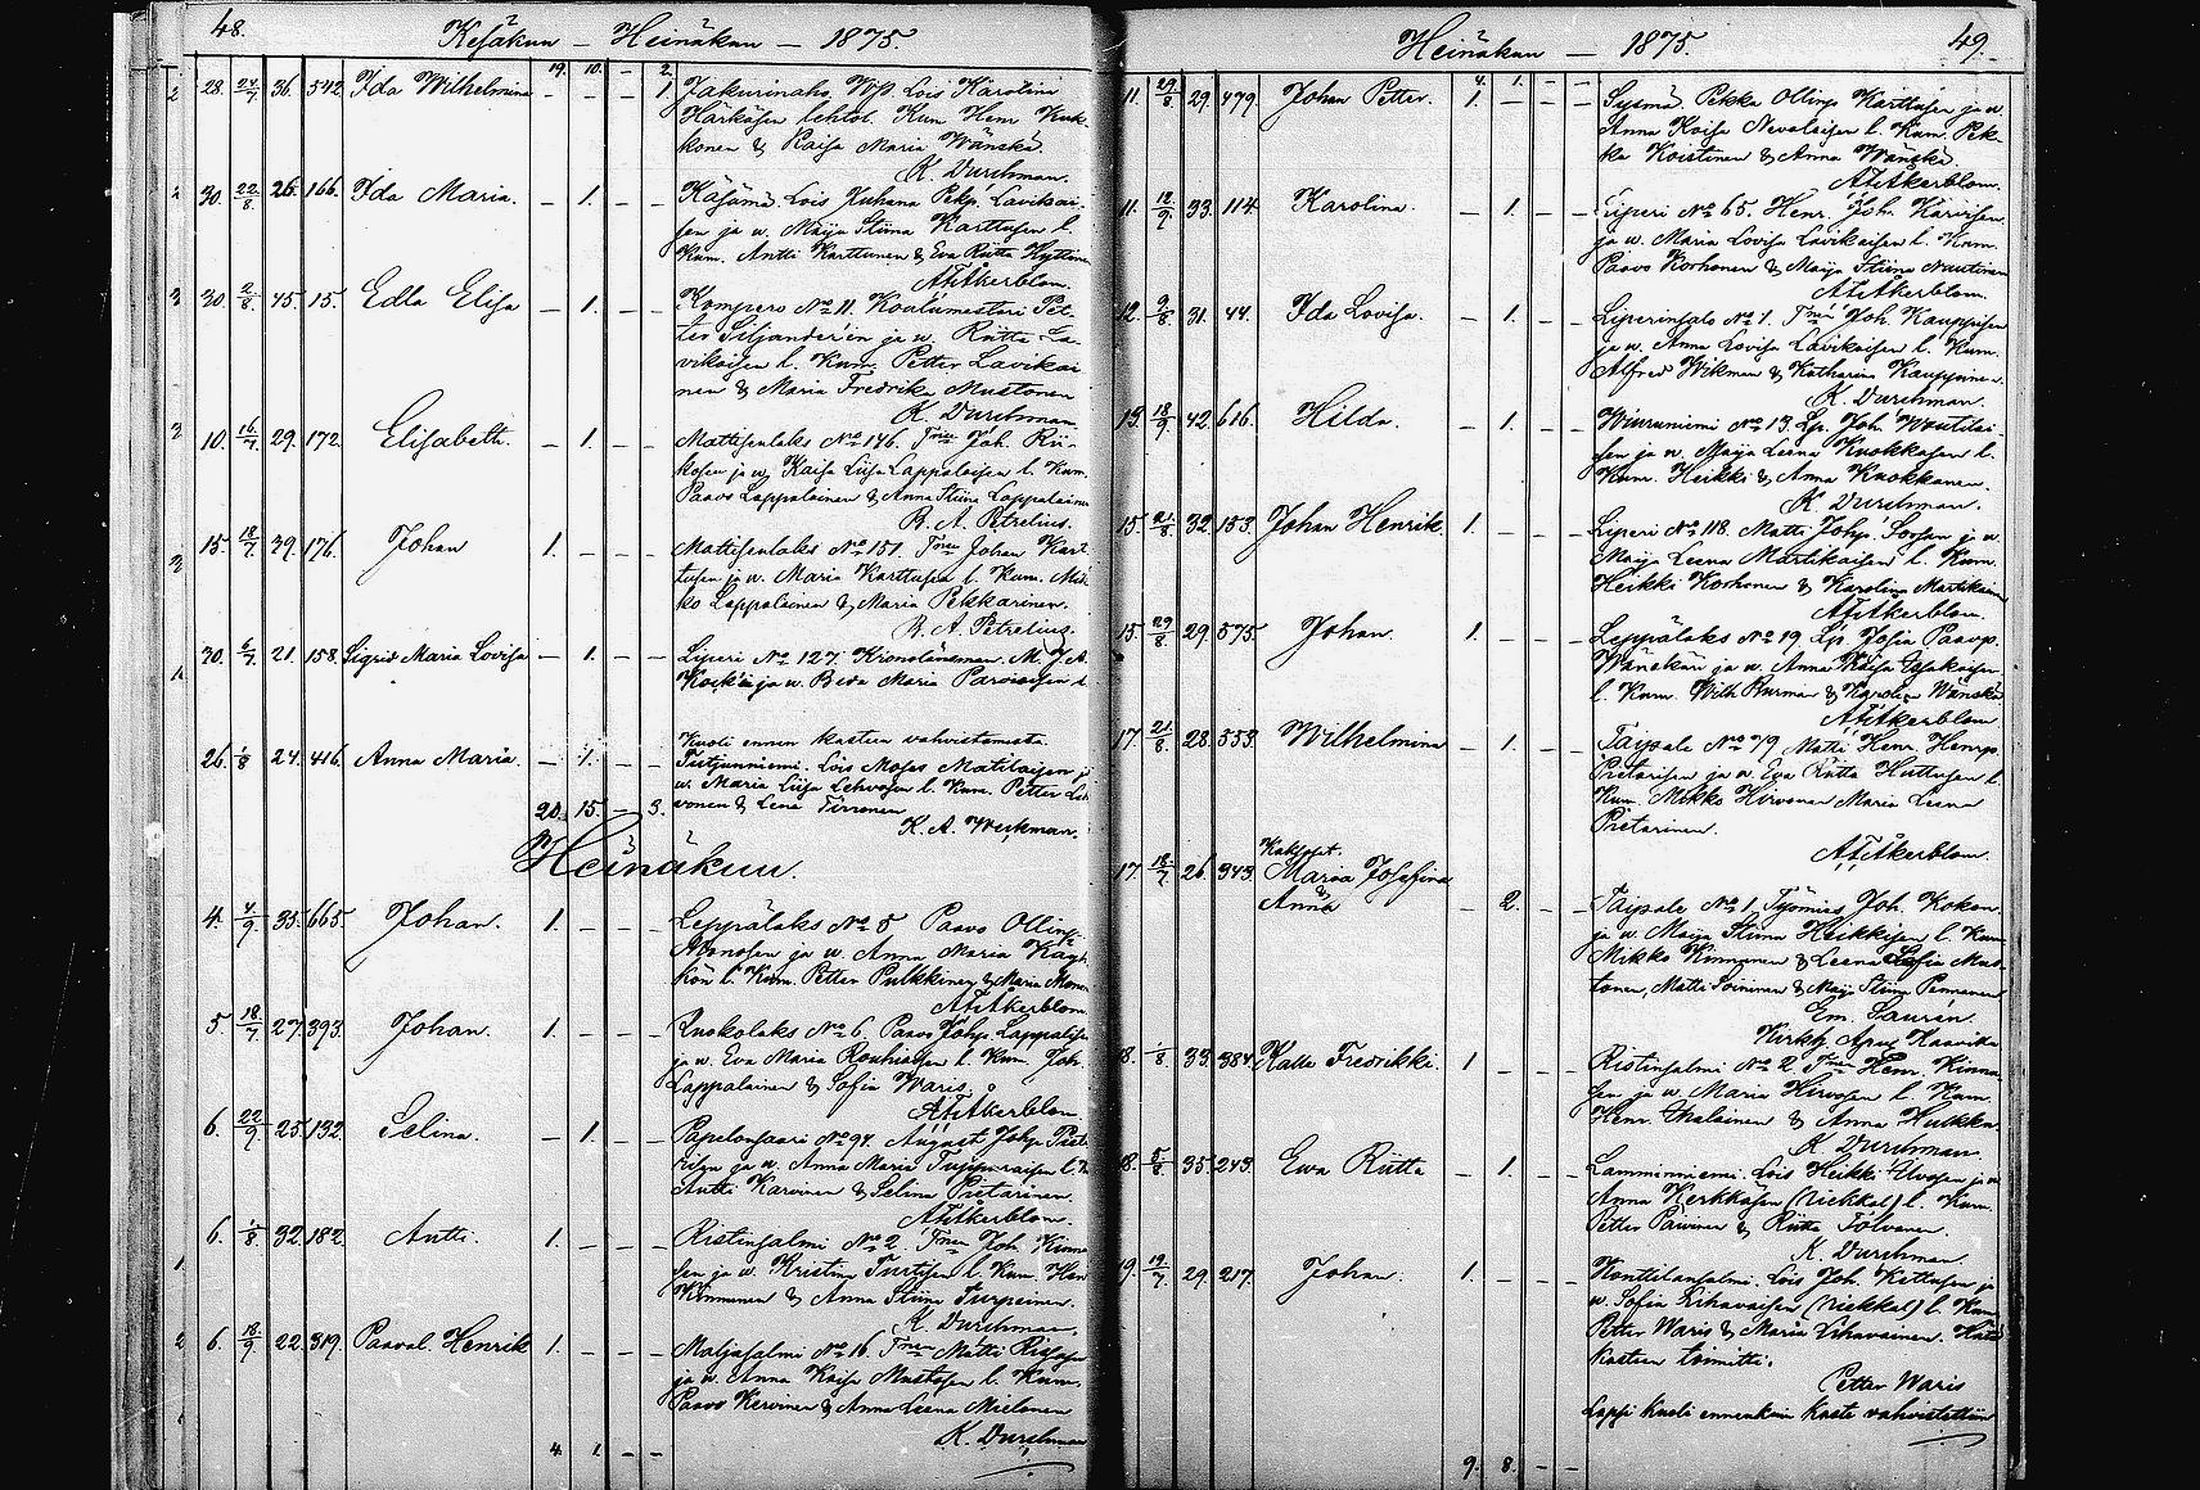 48.
Kesäkuu – Heinäkuu – 1875.
19. 10. – 2.
28. 24/7 36. 542. Ida Wilhelmina – – – 1. Jakurinaho. Wp. Lois Karolina
Härkäsen lehtol. Kum Henr Kuk-
konen & Kaisa Maria Wänskä.
K. Durchman.
30. 22/8 26. 166. Ida Maria. – 1. – – Käsämä. Lois Juhana Pekp. Lavikai-
sen ja w. Maija Stiina Karttusen l.
Kum. Antti Karttunen & Eva Riitta Hyttinen
Åkerblom.
30. 2/8 45. 15. Edla Elisa – 1. – – Kompero No 11. Koulumestari Pet-
ter Siljander'in ja w. Riitta La-
vikaisen l. Kum. Petter Lavikai
nen & Maria Fredrika Mustonen
K. Durchman.
10. 16/7 29. 172. Elisabeth. – 1. – – Mattisenlaks No 146. Joh. Rii-
kosen ja w. Kaisa Liisa Lappalaisen l. Kum.
Paavo Lappalainen & Anna Stiina Lappalainen
B. A. Petrelius.
15. 18/7 39. 176. Johan 1. – – – Mattisenlaks No 151. Johan Kart
tusen ja w. Maria Karttusen l. Kum. Mik
ko Lappalainen & Maria Pekkarinen.
B. A. Petrelius.
30. 6/7 21. 158. Sigrid Maria Lovisa – 1. – – Liperi No 127. Kronolänsman. M. J. A.
ja w. Beda Maria Parviaisen l.
Kuoli ennen kasteen vahvistamista.
26. 1/8 24. 416. Anna Maria. – 1. – – Lois Moses Matilaisen ja
w. Maria Liisa Lehvosen l. Kum. Petter Leh
20. 15. – 3. vonen & Lena Tirronen
K. A. Weckman.
Heinäkuu.
4. 4/9 35. 665. Johan. 1. – – – Leppälaks No 5 Paavo Ollinp.
Monosen ja w. Anna Maria Käyh
kön l. Kum. Petter Pulkkinen & Maria Monon
Åkerblom.
5. 18/7 27. 393. Johan. 1. – – – Ruokolaks No 6. Paavo Johp. Lappalaisen
ja w. Eva Maria Rouhiaisen l. Kum. Joh.
Lappalainen & Sofia Waris.
Åkerblom.
6. 22/9 25. 132. Selina. – 1. – – Papelonsaari No 94. August Johp. Pieta
risen ja w. Anna Maria Tuppuraisen l.
Antti Karvinen & Selina Pietarinen.
Åkerblom.
6. 1/8 32. 182. Antti. 1. – – – Ristinsalmi No 2. Joh. Kinnu
sen ja w. Kristina Turtisen l. Kum. Hen
Kinnunen & Anna Stiina Turpeinen.
K. Durchman.
6. 18/9 22. 319. Paaval Henrik 1. – – – Maljasalmi No 16. Matti Rissasen
ja w. Anna Kaisa Mustosen l. Kum.
Paavo Kervinen & Anna Leena Mielonen
K. Durchman
4 1. – –
Heinäkuu – 1875.
49.
4. 1. – –
11. 29/8 29. 479. Johan Petter. 1. – – – Sysmä. Pekka Ollinp. Karttusen ja w.
Anna Kaisa Nevalaisen l. Kum. Pek-
ka Koistinen & Anna Wänskä.
Åkerblom.
11. 12/9 33. 114. Karolina. – 1. – – Liperi No 65. Henr. Joh. Karvisen
ja w. Maria Lovisa Lavikaisen l. Kum.
Paavo Korhonen & Maija Stiina Nuutinen
Åkerblom.
12. 9/8 31. 44. Ida Lovisa. – 1. – – Liperinsalo No 1. Joh. Kauppisen
ja w. Anna Lovisa Lavikaisen l. Kum.
Alfred Wikman & Katharina Kauppinen.
K. Durchman.
13. 18/9 42. 616. Hilda. – 1. – – Wiuruniemi No 13. Lp. Joh. Woutilai-
sen ja w. Maija Leena Kuokkasen l.
Kum. Heikki & Anna Kuokkanen.
K. Durchman.
15. 21/8 32. 153. Johan Henrik. 1. – – – Liperi No 118. Matti Johp. Sorsan ja w.
Maija Leena Martikaisen l. Kum.
Heikki Korhonen & Karolina Martikainen
Åkerblom.
15. 29/8 29. 575. Johan. 1. – – – Leppälaks No 19. Lp. Josia Paavop.
Wänskän ja w. Anna Kaisa
l. Kum. Wilh Burman & Karolin Wänskä
Åkerblom
17. 21/8 28. 553. Wilhelmina – 1. – – Taipale No 79 Matti Henr. Henrp.
Pietarisen ja w. Eva Riitta Huttusen l.
Kum. Mikko Hirvonen Maria Leena
Pietarinen.
Åkerblom.
Kaksoset.
17. 18/7 26. 343. Maria Josefina
& Anna – 2. – – Taipale No 1. Työmies Joh. Kokon.
ja w. Maija Stiina Heikkisen l. Kum.
Mikko Kinnunen & Leena Sofia Mus-
tonen, Matti Soininen & Maija Stiina Pennanen
Em. Saurén.
Kirkh. Apul. Kaavilla
18. 1/8 33. 384. Kalle Fredrikki. 1 – – – Ristinsalmi No 2. Henr. Kinnu-
sen ja w. Maria Hirvosen l. Kum.
Henr. & Anna Hukka.
K Durchman
18. 5/8 35. 243. Ewa Riitta – 1. – – Lamminniemi. Lois Heikki ja w
Anna Kerkkäsen (Niekkal) l. Kum.
Petter Päivinen & Riitta Tolvanen.
K. Durchman.
19. 19/7 29. 217. Johan. 1. – – – Konttilansalmi. Lois Joh. Kettusen ja
w. Sofia Lihavaisen (Niekkal) l. Kum
Petter Waris & Maria Lihavainen. Hätä
kasteen toimitti.
Petter Waris
Lapsi kuoli ennenkuin kaste vahvistettiin
9. 8. – –